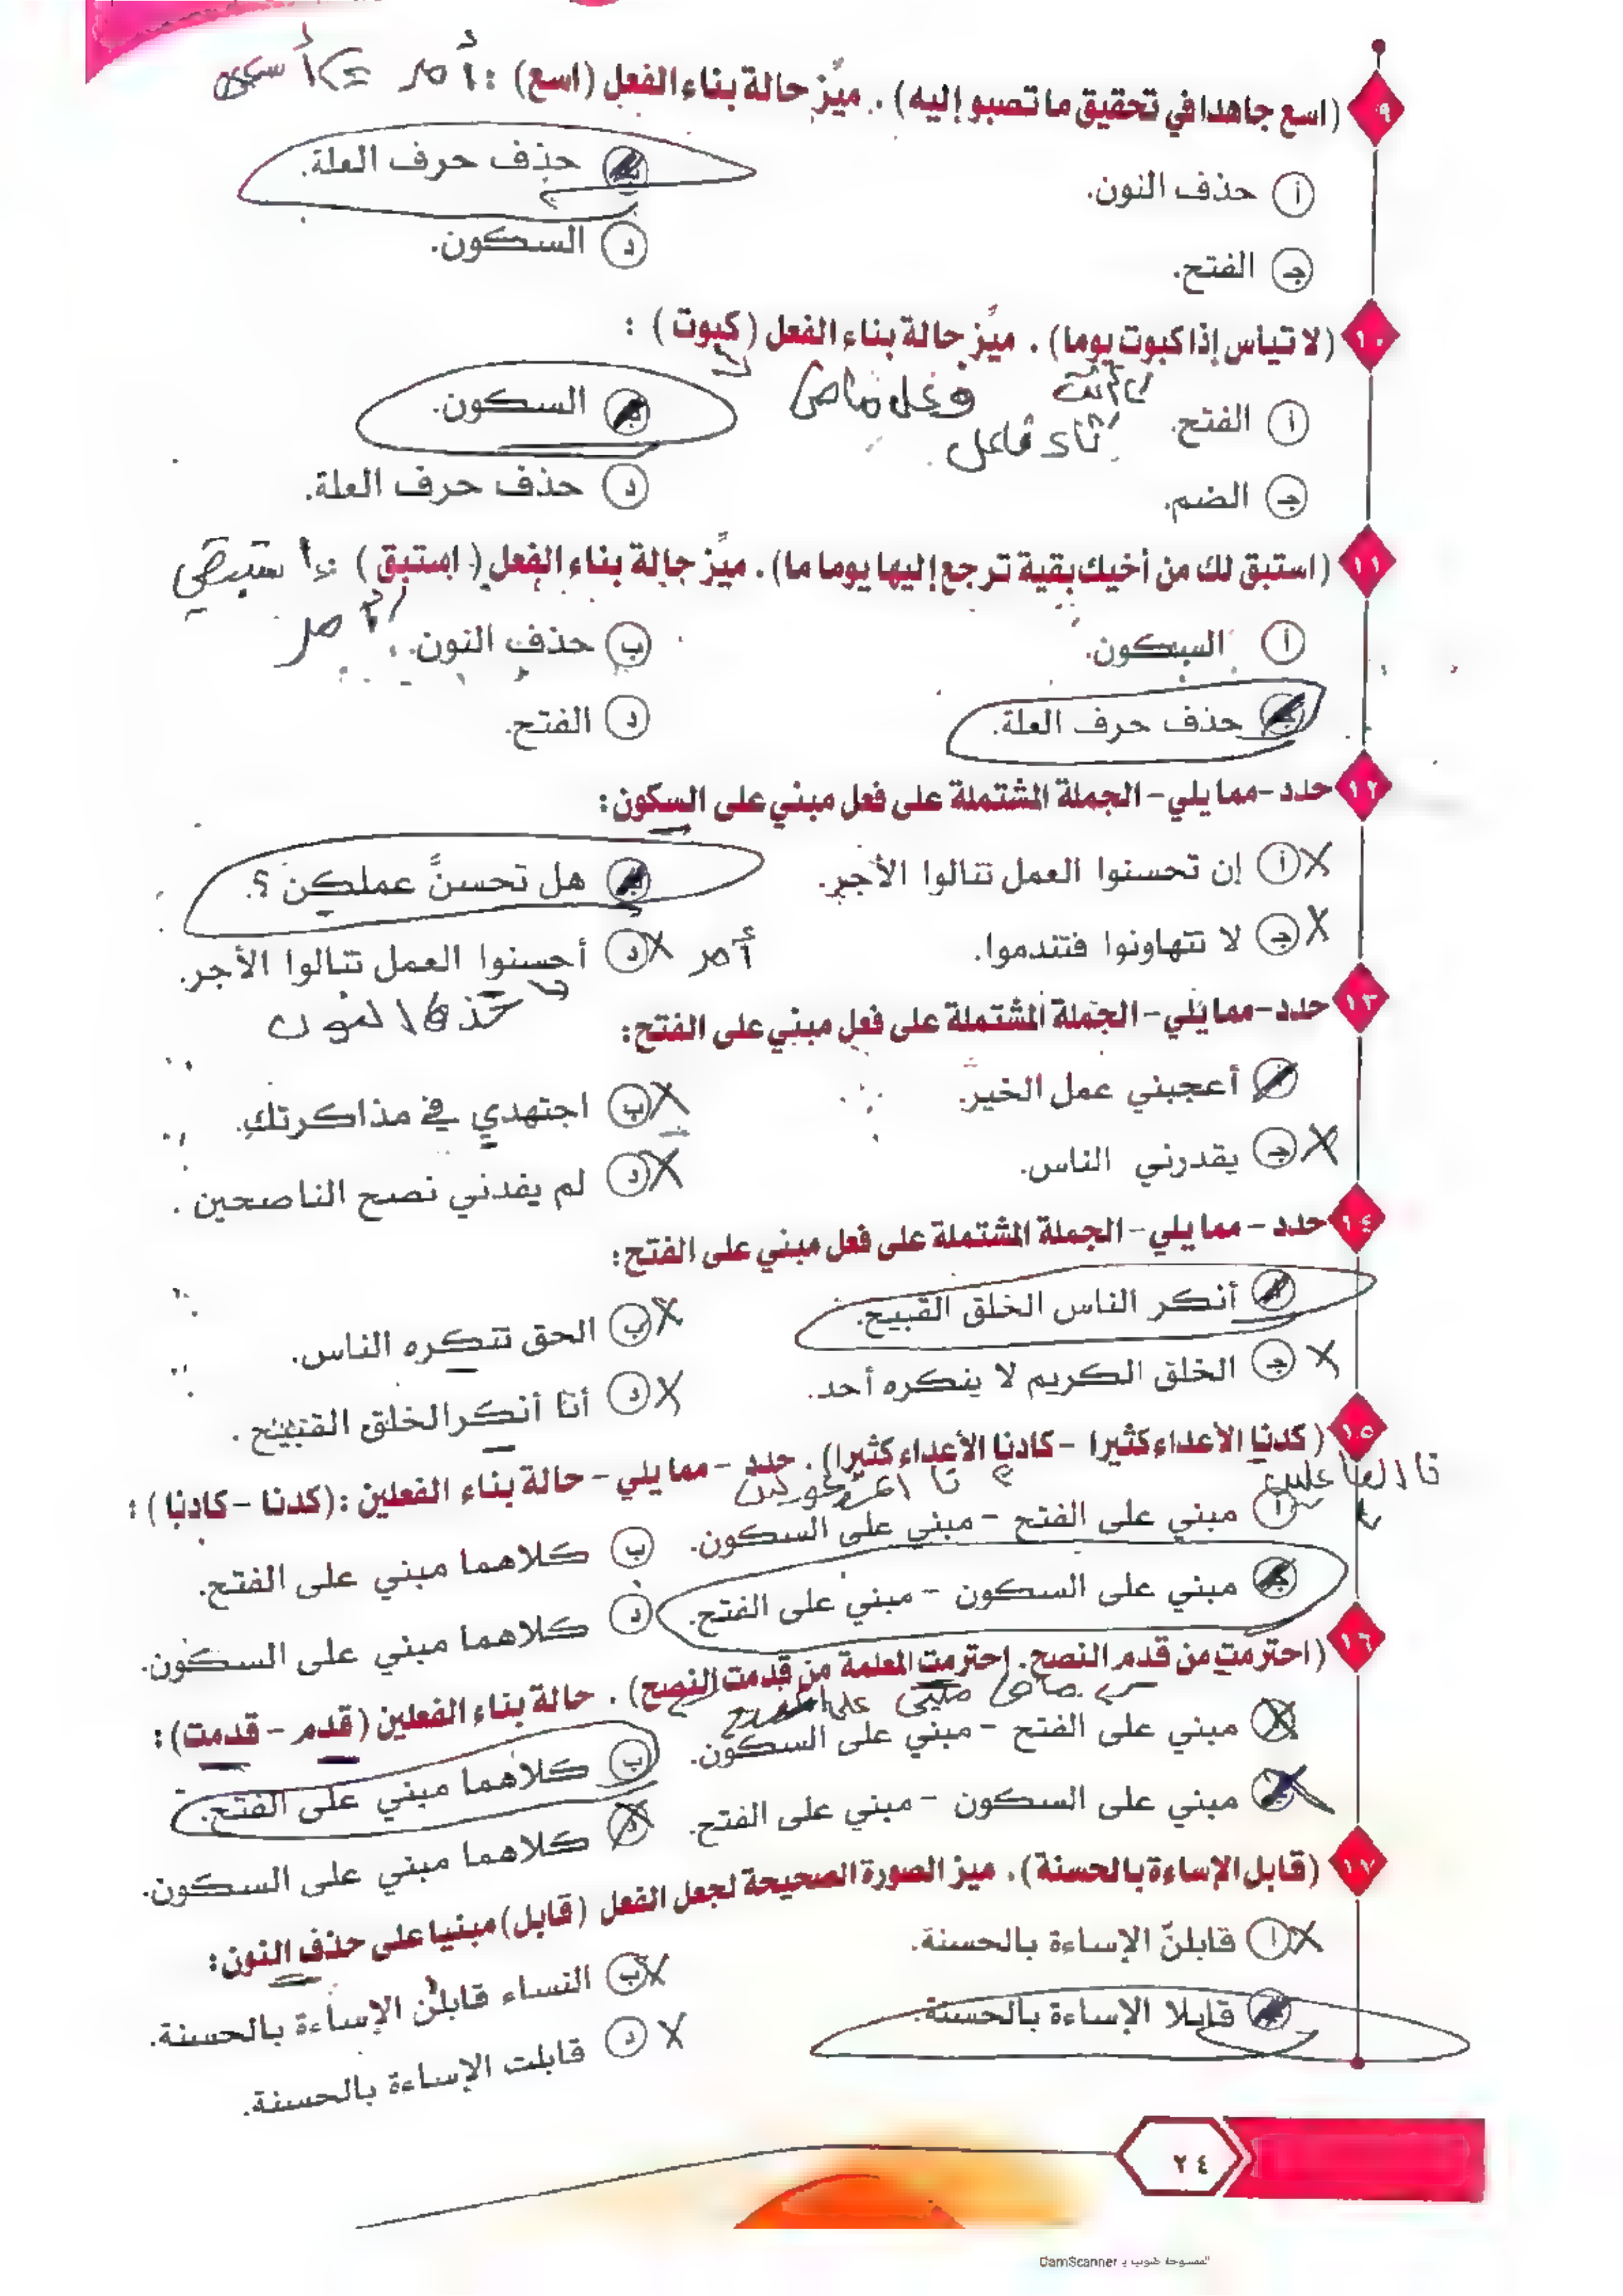 ٩ (اسع جاهدا في تحقيق ما تصبو إليه) . ميِّز حالة بناء الفعل (اسع) : أمر
أ حذف النون.
ب حذف حرف العلة.
جـ الفتح.
د السكون.
١٠ (لا تيأس إذا كبوت يوما) . ميِّز حالة بناء الفعل (كبوت) :
فعل ماض
تاء فاعل
أ الفتح.
ب السكون.
جـ الضم.
د حذف حرف العلة.
١١ (استبق لك من أخيك بقية ترجع إليها يوما ما) . ميِّز حالة بناء الفعل (استبق) : استبقي
أمر
أ السكون.
ب حذف النون.
جـ حذف حرف العلة.
د الفتح.
١٢ حدد - مما يلي - الجملة المشتملة على فعل مبني على السكون:
أ إن تحسنوا العمل تنالوا الأجر.
ب هل تحسنَّ عملكن ؟.
جـ لا تتهاونوا فتندموا.
د أحسنوا العمل تنالوا الأجر.
أمر
حذف النون
١٣ حدد - مما يلي - الجملة المشتملة على فعل مبني على الفتح:
أ أعجبني عمل الخير.
ب اجتهدي في مذاكرتك.
جـ يقدرني الناس.
د لم يفدني نصح الناصحين .
١٤ حدد - مما يلي - الجملة المشتملة على فعل مبني على الفتح:
أ أنكر الناس الخلق القبيح.
ب الحق تنكره الناس.
جـ الخلق الكريم لا ينكره أحد.
د أنا أنكر الخلق القبيح .
١٥ (كدنا الأعداء كثيرا - كادنا الأعداء كثيرا) . حدد - مما يلي - حالة بناء الفعلين : (كدنا - كادنا) :
نا الفاعلين
أ مبني على الفتح - مبني على السكون.
ب كلاهما مبني على الفتح.
جـ مبني على السكون - مبني على الفتح.
د كلاهما مبني على السكون.
١٦ (احترمت من قدم النصح. احترمت المعلمة من قدمت النصح) . حالة بناء الفعلين (قدم - قدمت) :
أ مبني على الفتح - مبني على السكون.
ب كلاهما مبني على الفتح.
جـ مبني على السكون - مبني على الفتح.
د كلاهما مبني على السكون.
١٧ (قابل الإساءة بالحسنة) . ميز الصورة الصحيحة لجعل الفعل (قابل) مبنيا على حذف النون:
أ قابلنّ الإساءة بالحسنة.
ب النساء قابلن الإساءة بالحسنة.
جـ قابلا الإساءة بالحسنة.
د قابلت الإساءة بالحسنة.
٢٤
الممسوحة ضوئيا بـ CamScanner